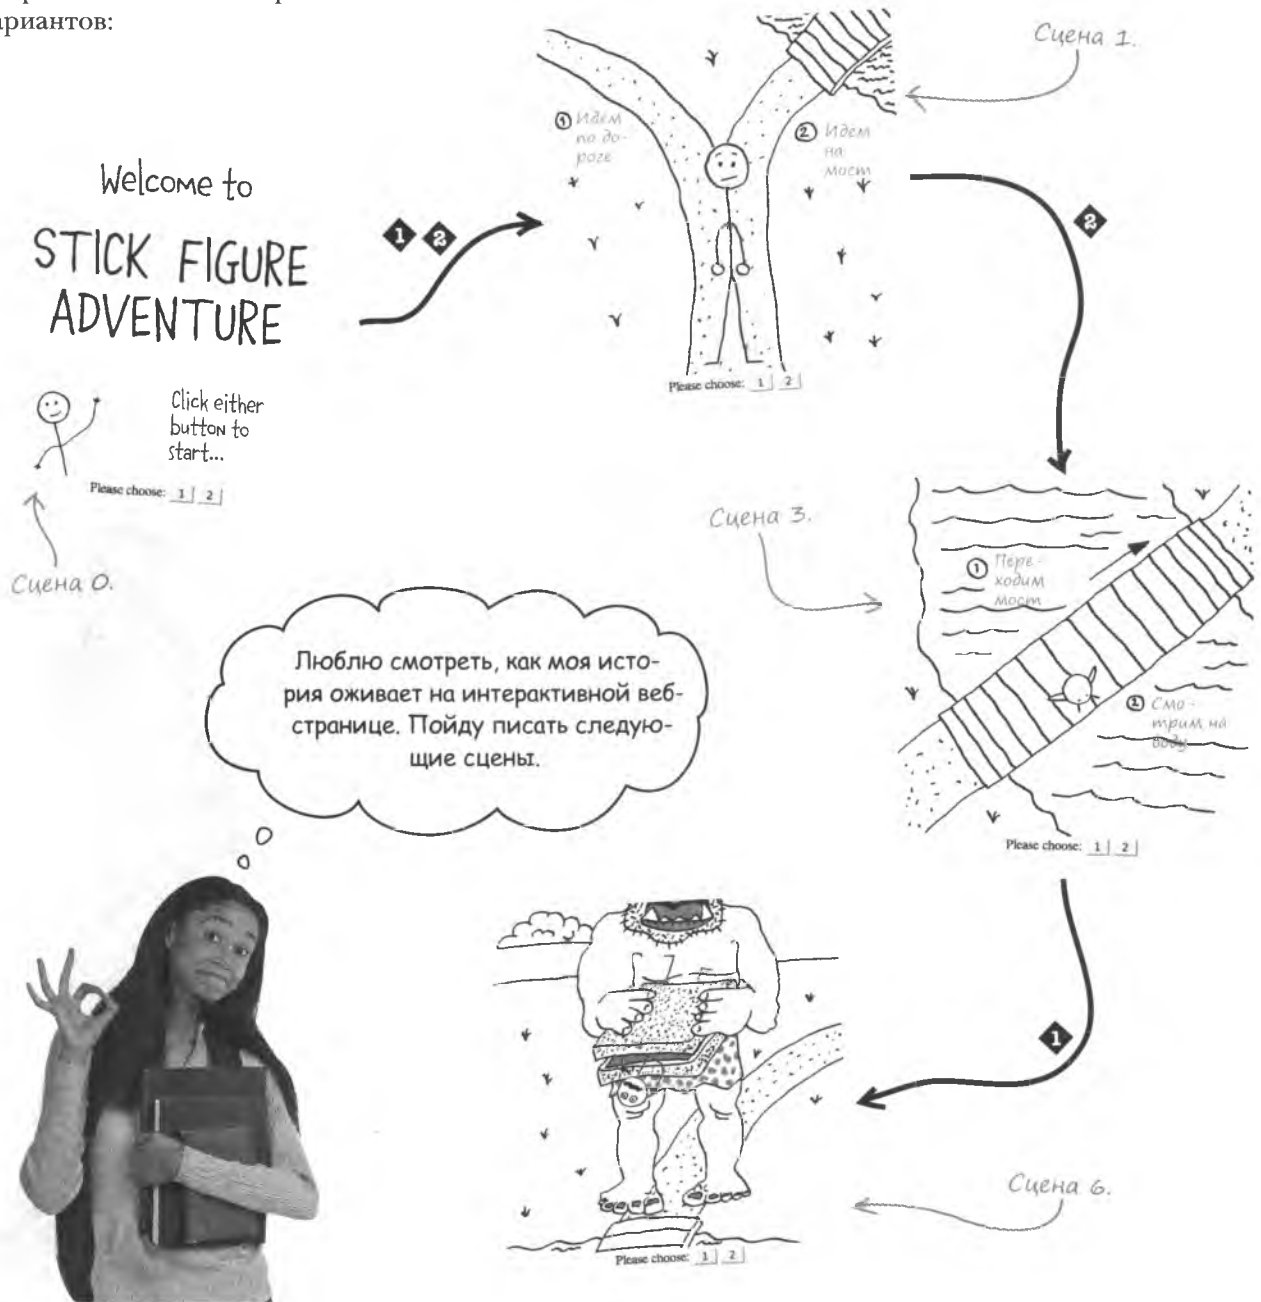 ариантов:
Сцена 1.
① Идем
по до-
роге
② Идем
на
мост
Welcome to
STICK FIGURE
ADVENTURE
1 2
2
Please choose: 1 2
Click either
button to
start...
Please choose: 1 2
Сцена 0.
Сцена 3.
① Пере-
ходим
мост
② Смо-
трим на
воду
Please choose: 1 2
Люблю смотреть, как моя исто-
рия оживает на интерактивной веб-
странице. Пойду писать следую-
щие сцены.
1
Сцена 6.
Please choose: 1 2